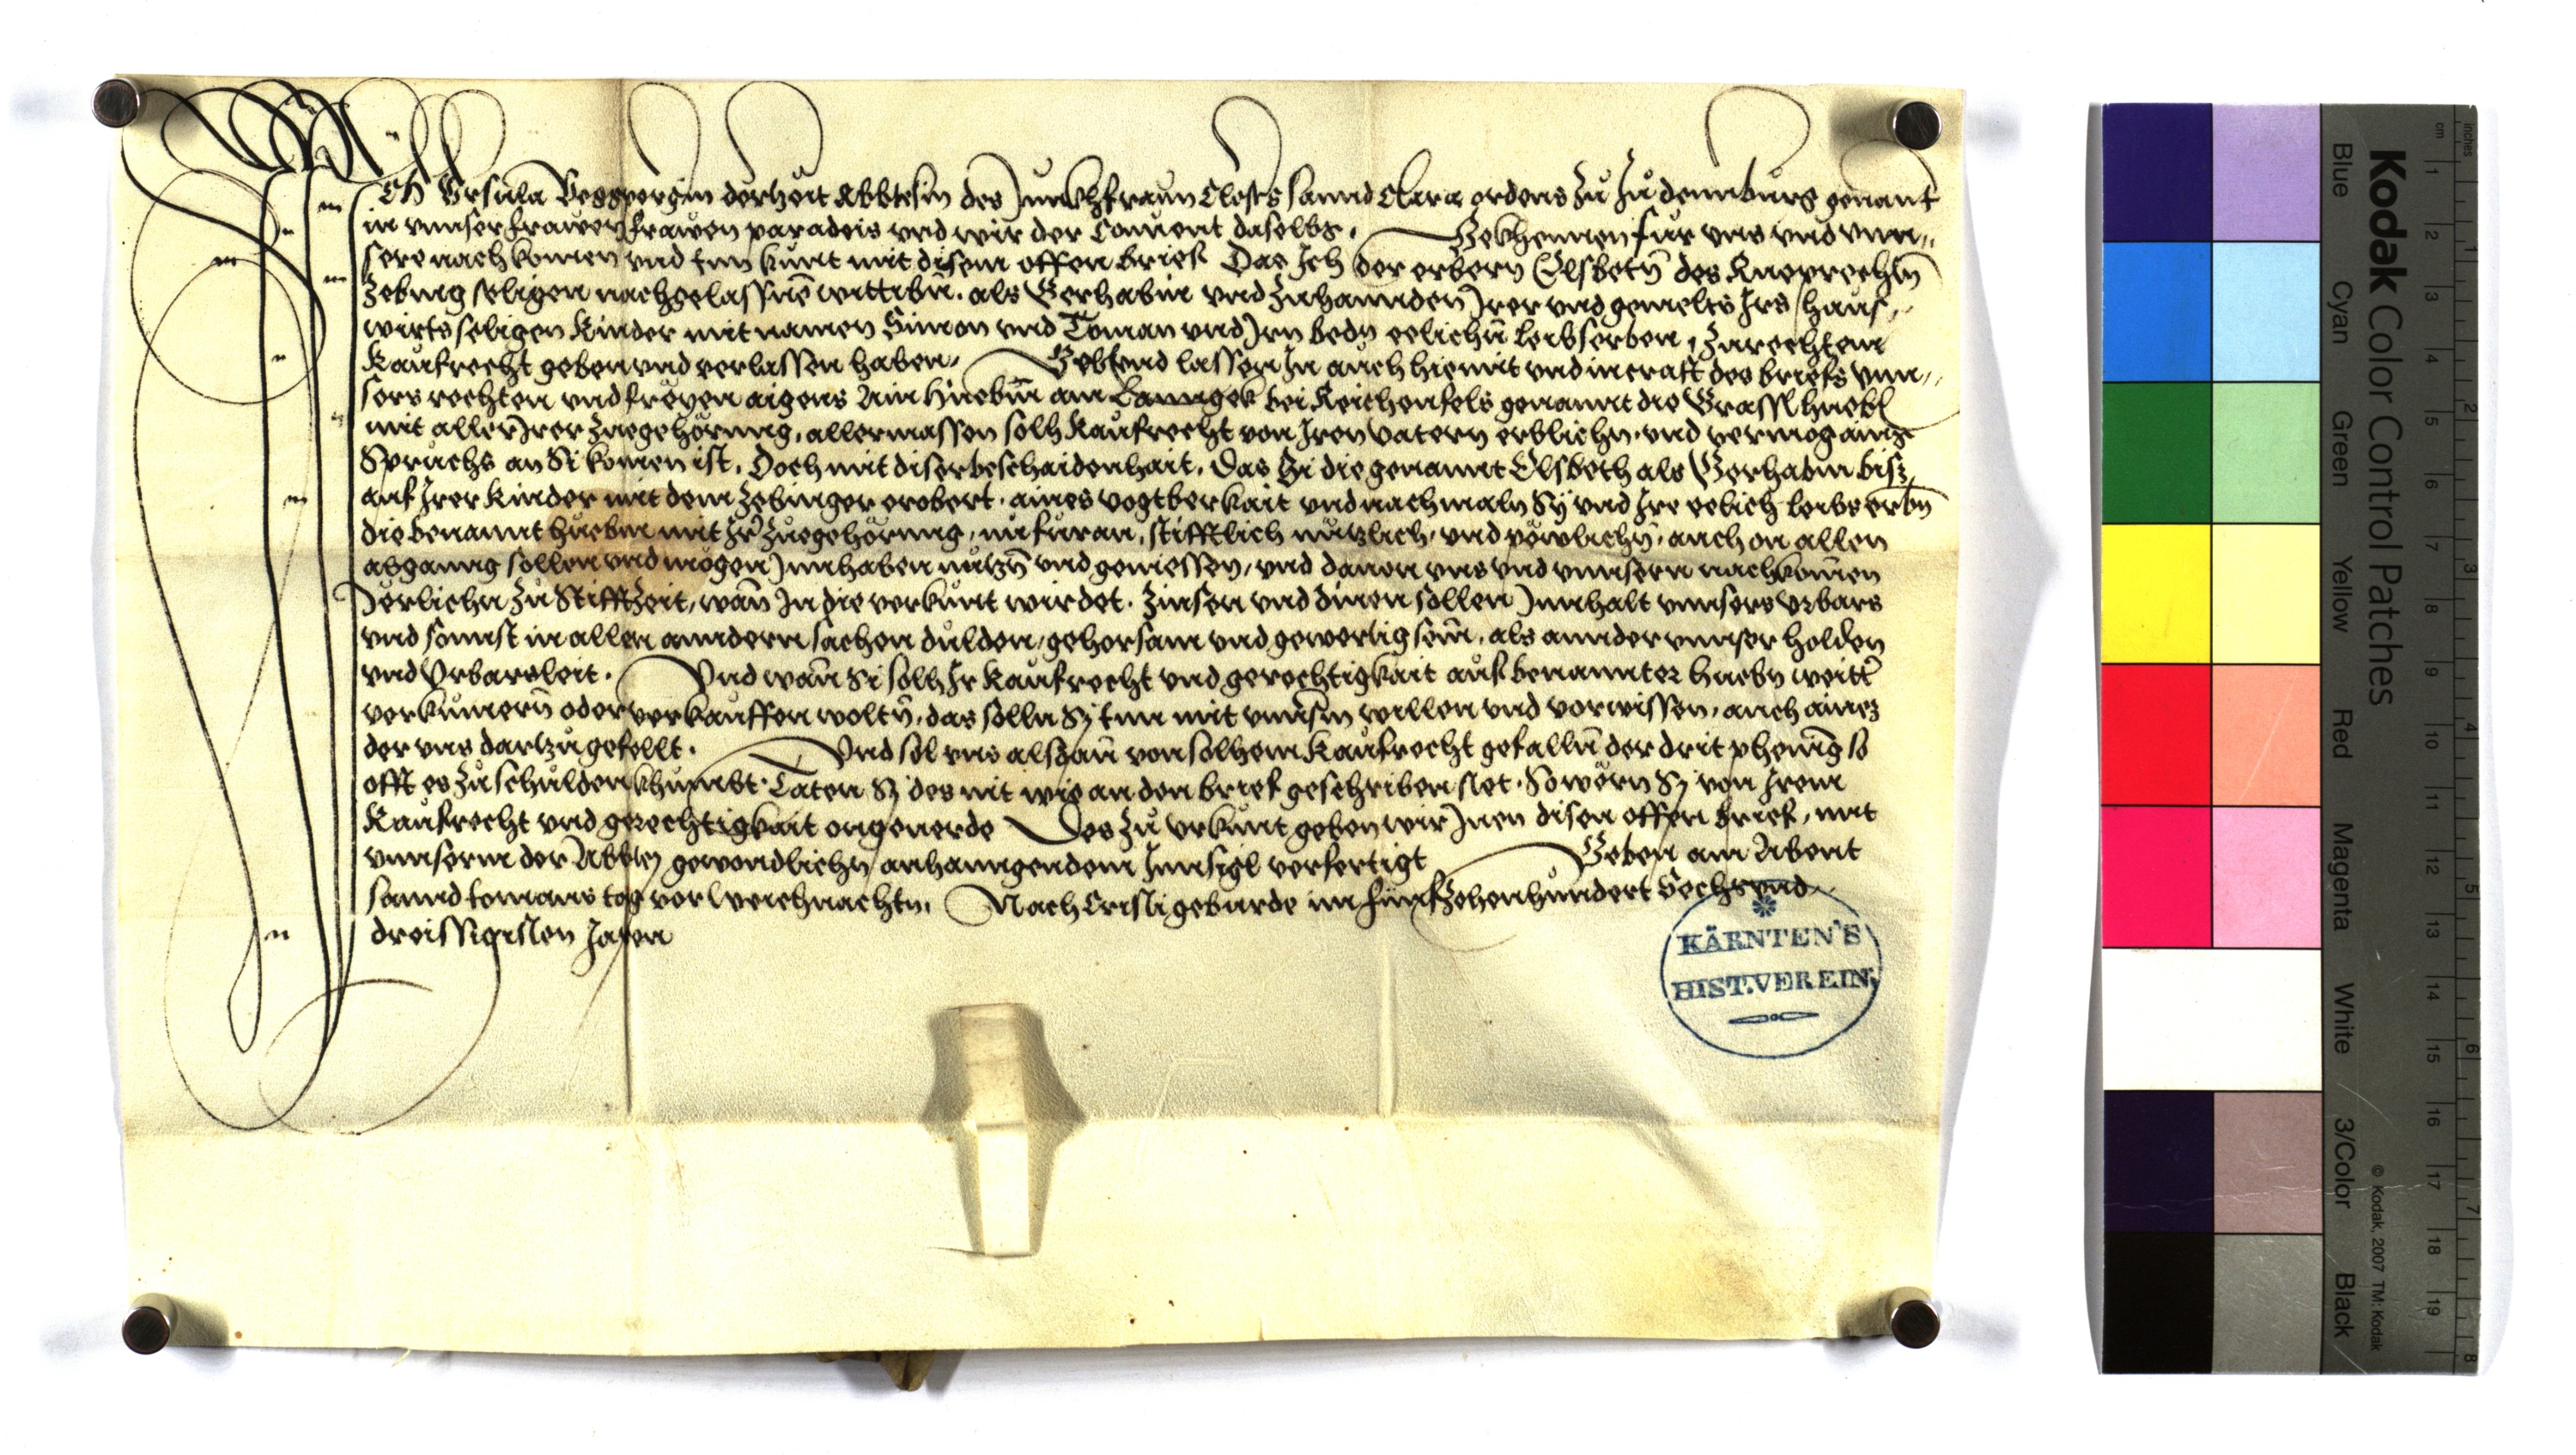 Ich Vrsula derzeit Abbtesin des Junckhfraun Closts sannd Clara ordens zů Jůdennbůrg genant
in vnnser frawen paradeis vnd wir der Conuent daselbs. Bekhennen fůr vns vnd vnn„
sere nachkomen vnd tun kůnt mit disem offen brief Das Ich der erbern Elsbetn̄ des
Zebing seligen nachgelassnē wittibn. als Gerhabin vnd Zuhannden Jrer vnd gemelts Jrs haus„
wirts seligen Kinder mit namen Simon vnd Toman vnd Jrn bedn eelichn̄ leibserben, Zu rechtem
Kaůfrecht geben vnd verlassen haben. Geb vnd lassen Jn auch hiemit vnd in craft des briefs vnn„
sers rechten vnd freyen aigens Ain Hůebm̄ am bei Reichenfels genannt die Grasslhuebl
mit aller Jrer Zuegehörung, allermassen solh Kaůfrecht von Jren vatern erblichn. vnd vermog ainz
Sprůchs an Si komen ist. Doch mit diser beschaidenhait. Das Si die genannt Elsbeth als Gerhabin bisz
auf Jrer Kinder mit dem Zebinger erobert. aines vogtberkait vnd nachmaln Sÿ vnd Jre eelich leibserbn̄
die benannt hůebm mit Jr̄ Zůegehörung, nů fůran, stifftlich nůtzlich. vnd pöwlichn̄. auch on allen
abganng sollen vnd mögen Jnnhaben nůtzn̄ vnd geniessen, vnd dauon vns vnd vnnsern nachkomen
Jerlichn Zů Stifftzeit, wan̄ Jn die verkůnt wirdet. Zinsen vnd dinen sollen Jnnhalt vnnsers Vrbars
vnd sonnst in allen anndern sachen dulden, gehorsam vnd gewertig sein̄. als annder vnnser holden
vnd Vrbarsleit. Vnd wan̄ Si solh Jr Kaufrecht vnd gerechtigkait auf benannter huebn weitt̄
verkůmern̄ oder verkauffen woltn̄. das solln Sÿ tun mit vnnsm̄ willen vnd vorwissen. auch ainez
der vns dartzů gefellt. Vnd sol vns alsdan̄ von solhem Kaůfrecht gefalln̄ der drit pheninḡ so
offt es Zů schulden khumbt. Täten Sÿ des nit wie an den brief geschriben stet. So wern Sÿ von Jrem
Kaůfrecht vnd gerechtigkait ongeuerde Des Zů vrkůnt geben wir Jnen disen offen brief, mit
vnnserm der Abbtey gewondlichn anhanngendem Jnnsigl verfertigt Geben am Abent
sannd tomans tag vor Weichnachtn. Nach Cristi gebůrde im fůnfzehenhůndert Sechs vnd„
dreissigisten Jaren
KÄRNTEN'S
HIST. VEREIN.
Kodak Color Control Patches
Blue Cyan Green Yellow Red Magenta White 3/Color Black
© Kodak, 2007 TM: Kodak
inches 1 2 3 4 5 6 7 8
cm 1 2 3 4 5 6 7 8 9 10 11 12 13 14 15 16 17 18 19